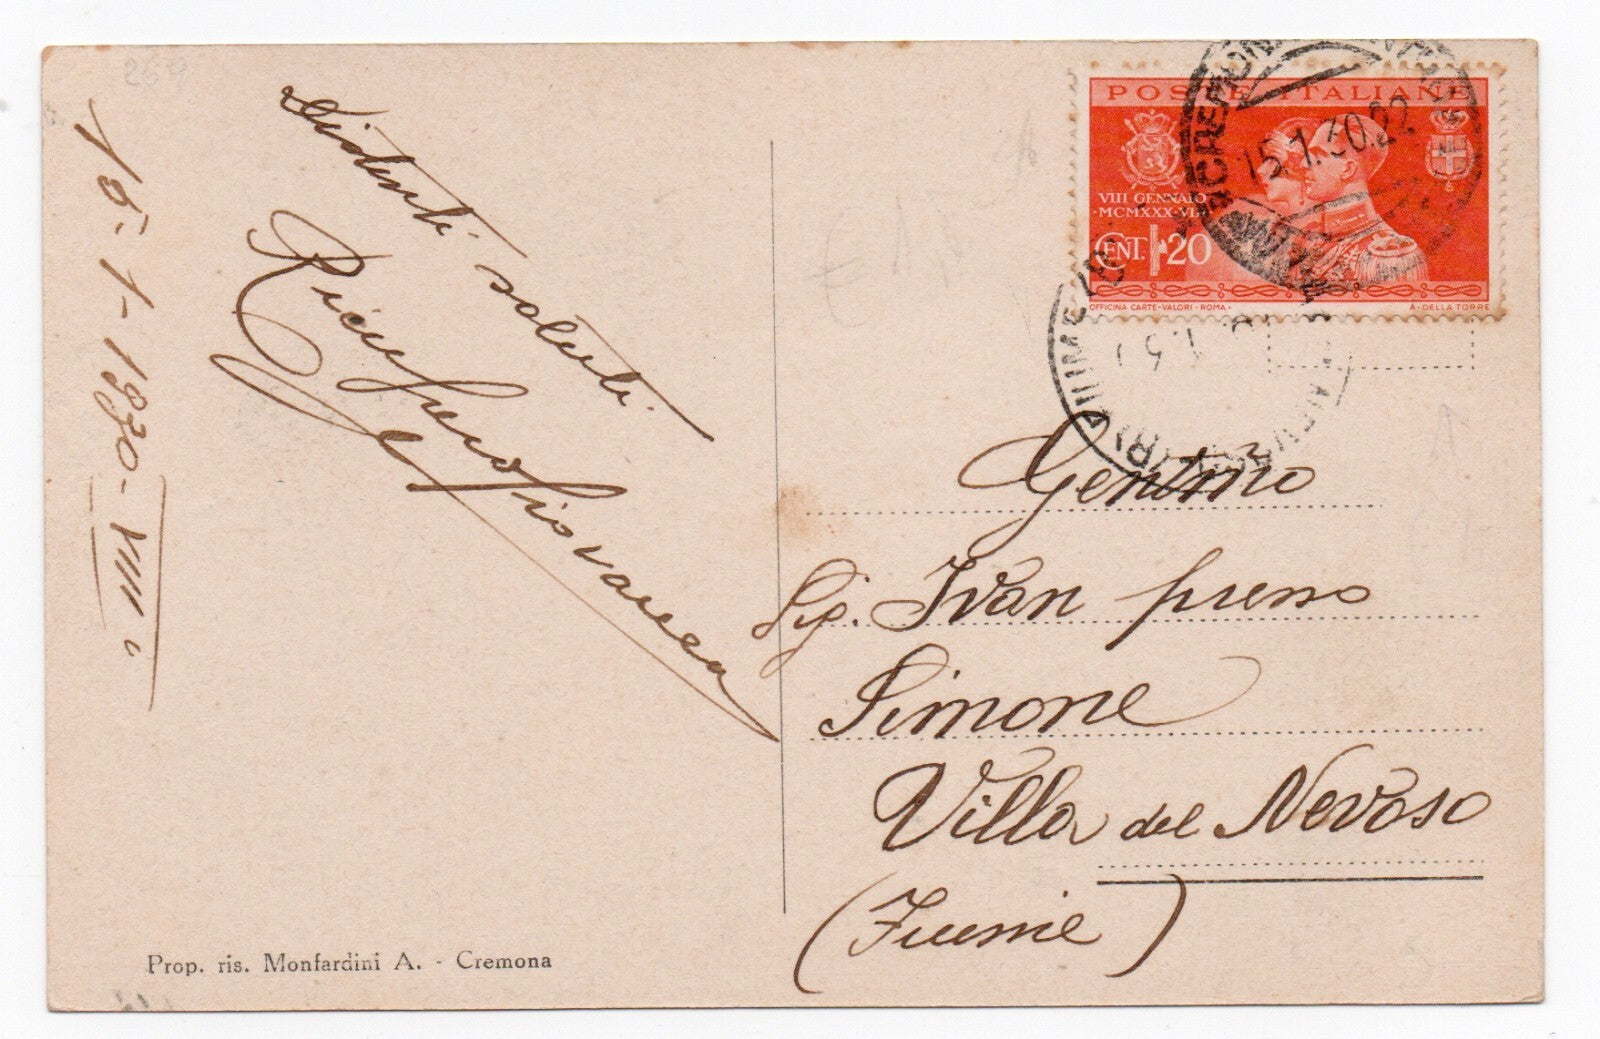 15-1-1930-VIII
saluti
Prop. ris. Monfardini A. - Cremona
POSTE ITALIANE
VIII GENNAIO
MCMXXX-VIII
CENT. 20
OFFICINA CARTE-VALORI - ROMA -
A - DELLA TORRE
CREMONA
15.1.30.22
FIUME
Gentmo
Sig. Ivan presso
Simone
Villa del Nevoso
(Fiume)